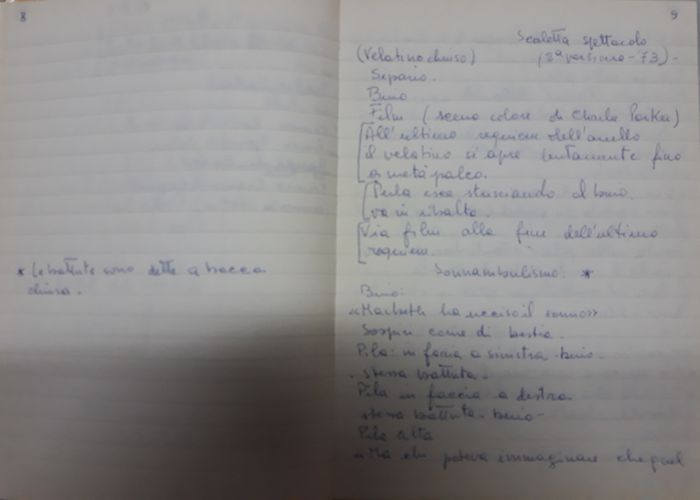 8
* Le battute sono dette a bocca
chiusa.
9
Scaletta spettacolo
(Velatino chiuso) (3ª versione - '73) -
Sipario.
Buio
Film ( scena colore di Charlie Parker)
All'ultimo requiem dell'anello
il velatino si apre lentamente fino
a metà palco.
Perla esce strisciando al buio.
va in ribalta.
Via film alla fine dell'ultimo
requiem.
Sonnambulismo: *
Buio:
«Macbeth ha ucciso il sonno»
Sospiri come di bestia.
Pila: in faccia a sinistra - buio.
- stessa battuta -
Pila in faccia a destra
stessa battuta - buio -
Pila alta
«Ma chi poteva immaginare che quel